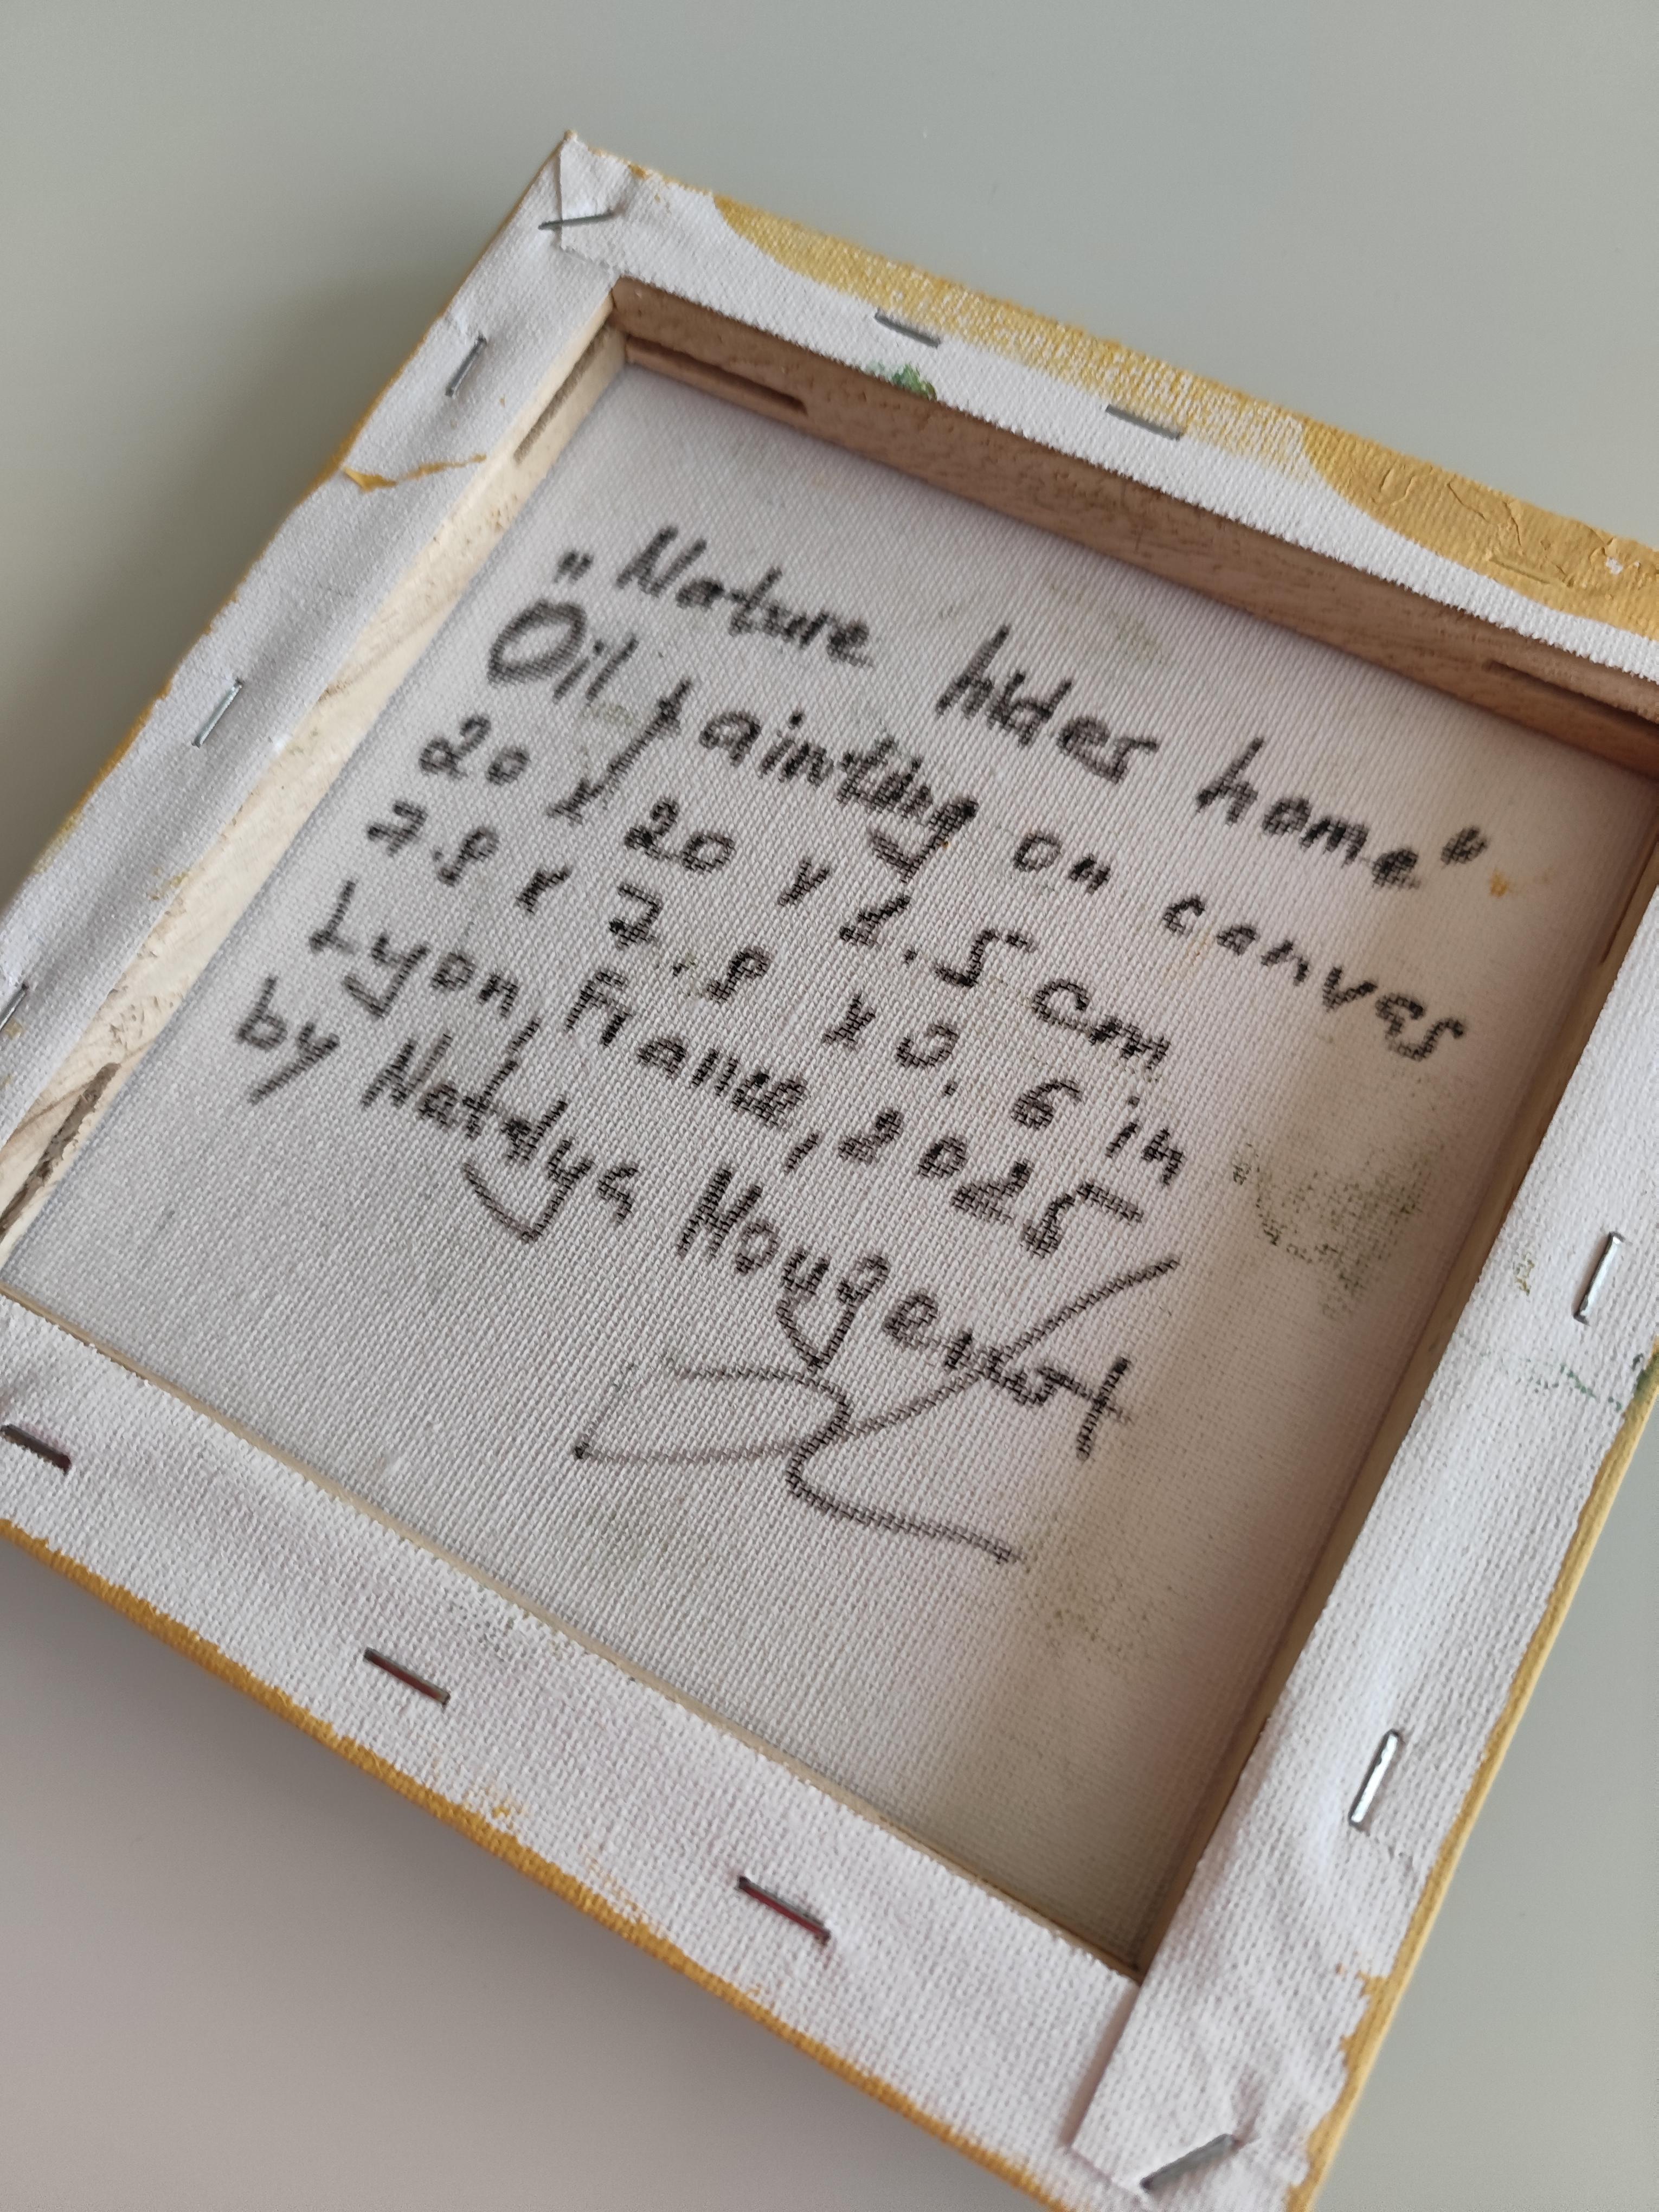 "Nature hides home"
Oil painting on canvas
20 x 20 x 1.5 cm
7.8 x 7.8 x 0.6 in
Lyon, France, 2025
by Natalya Hougenot